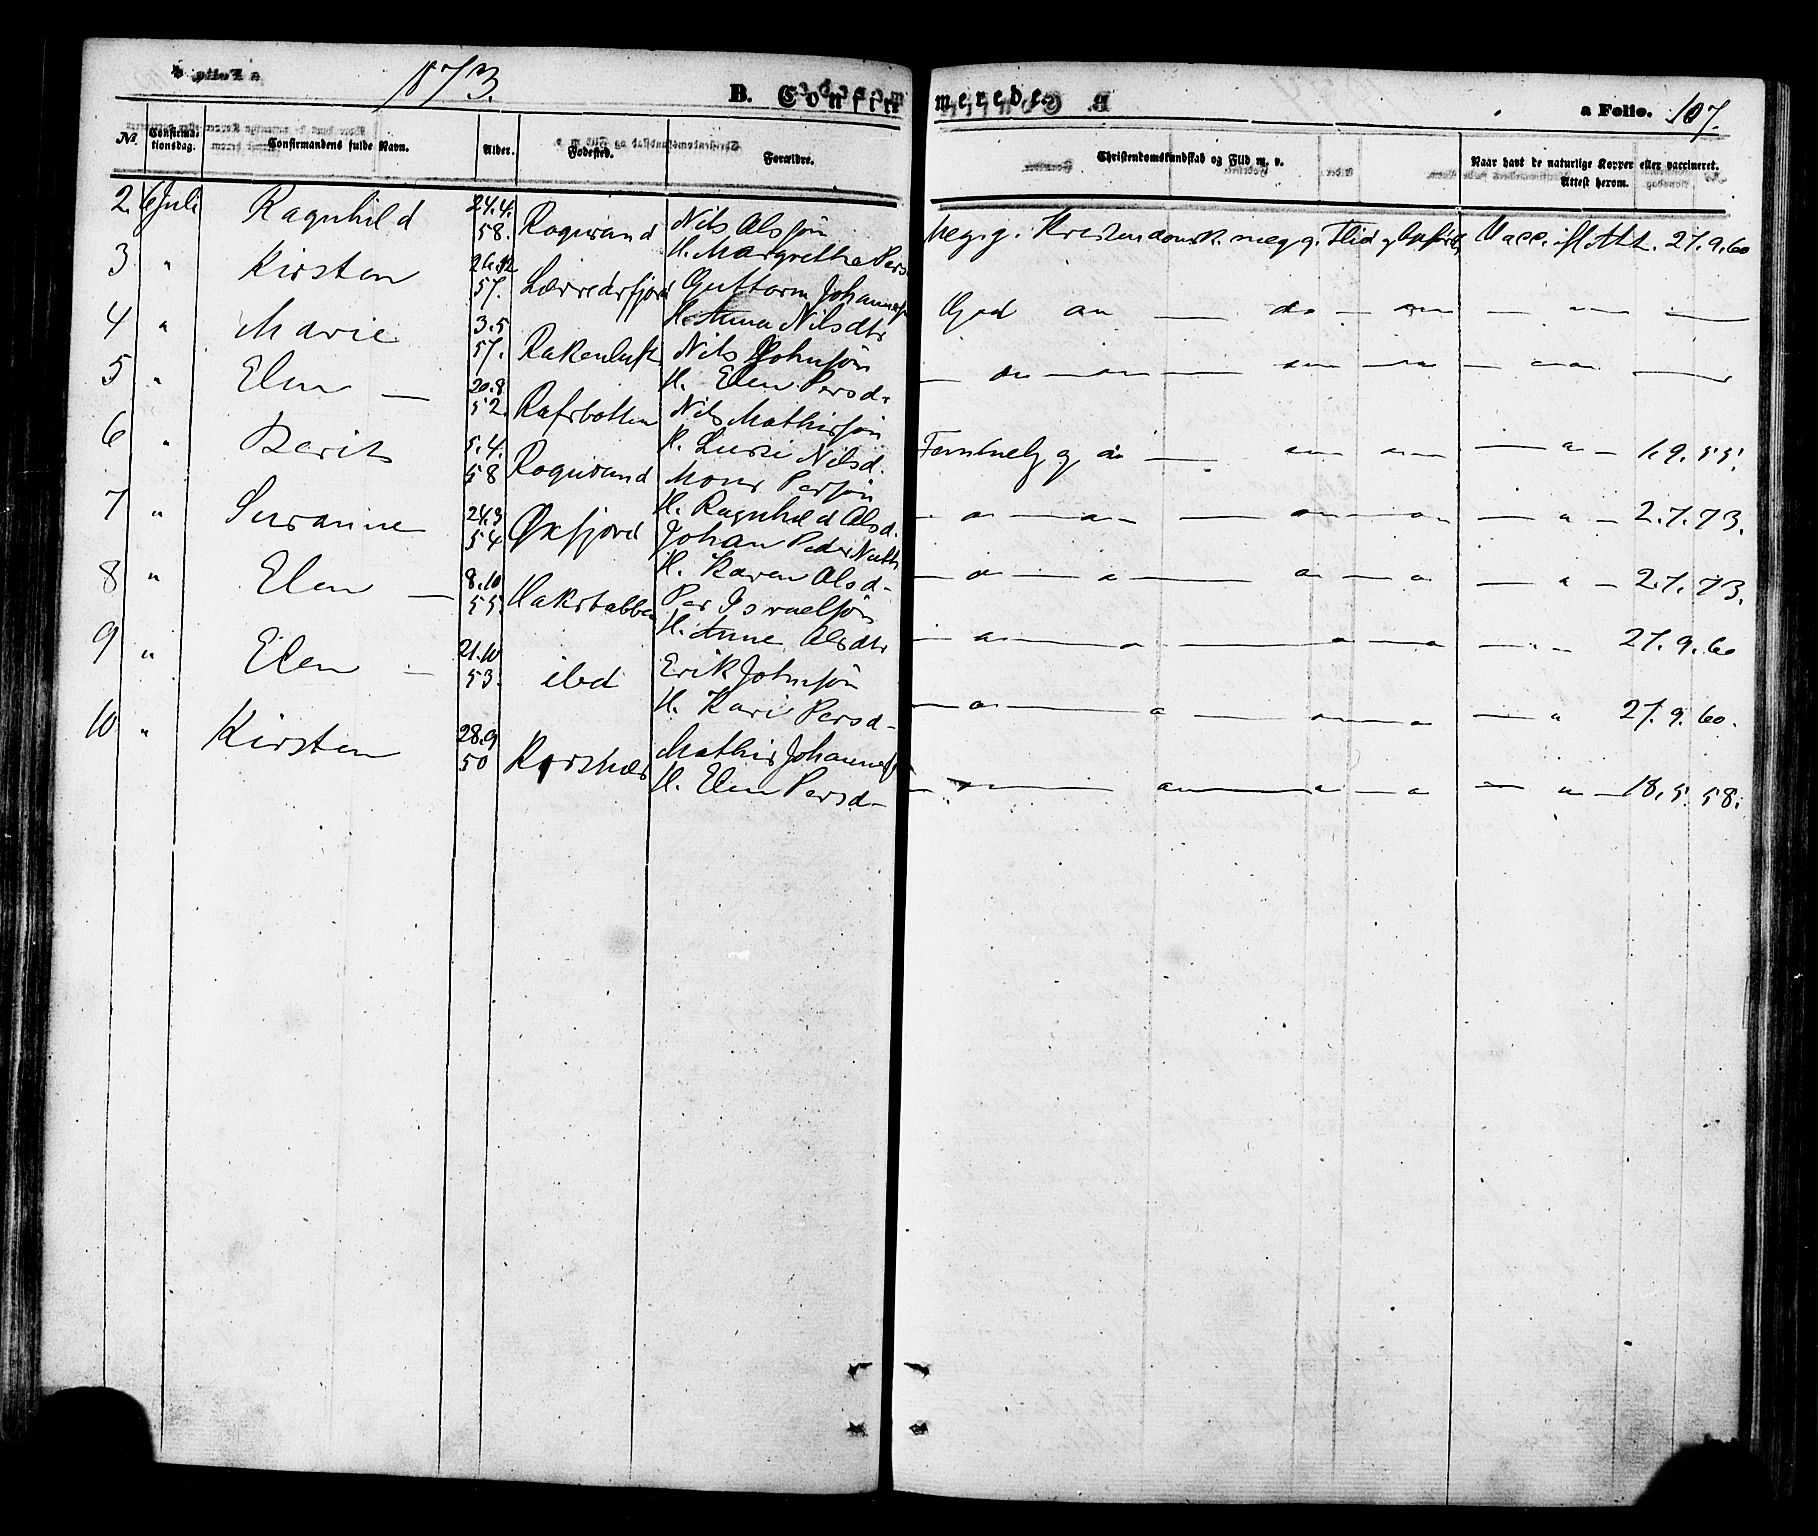 1873.
B. Confirmerede.
a Folio. 107.
No. Confirmationsdag. Confirmandens fulde Navn. Alder. Fødested. Forældre. Christendomskundskab og Flid m. v. Naar havt de naturlige Kopper eller vaccineret. Attest herom.
2 6 Juli Ragnhild 24.4. 58. Rognsund Nils Alssøn
H. Margrethe Pers
Meg. g. Kristendomsk. meg g. Flid og Opførs. Vacc. ifl. Att. 27.9.60
3 " Kirsten 26.12 57. Lærredsfjord Guttorm Johannes
H. Anna Nilsdtr
God
4 " Marie 3.5 57. Nils Johnsøn
H. Elen Persd.
5 " Elen — 20.8 52. Rafsbotten Nils Mathissøn
H. Nilsd.
1.9.55.
6 " Berit 5.4. 58 Rognsund Mons Persøn
H. Ragnhild Alsd.
2.7.73.
7 " Susanne 24.3 54 Øxfjord Johan Peder
H. Karen Alsd-
2.7.73.
8 " Elen — 8.10 55. Hakstabben Per Israelsøn
H. Anne Alsdtr
27.9.60
9 " Elen — 21.10 53. ibd Erik Johnsøn
H. Kari Persd-
27.9.60.
10 " Kirsten 28.9 50 Korsnæs Mathis Johannes
H. Elen Persd-
18.5.58.